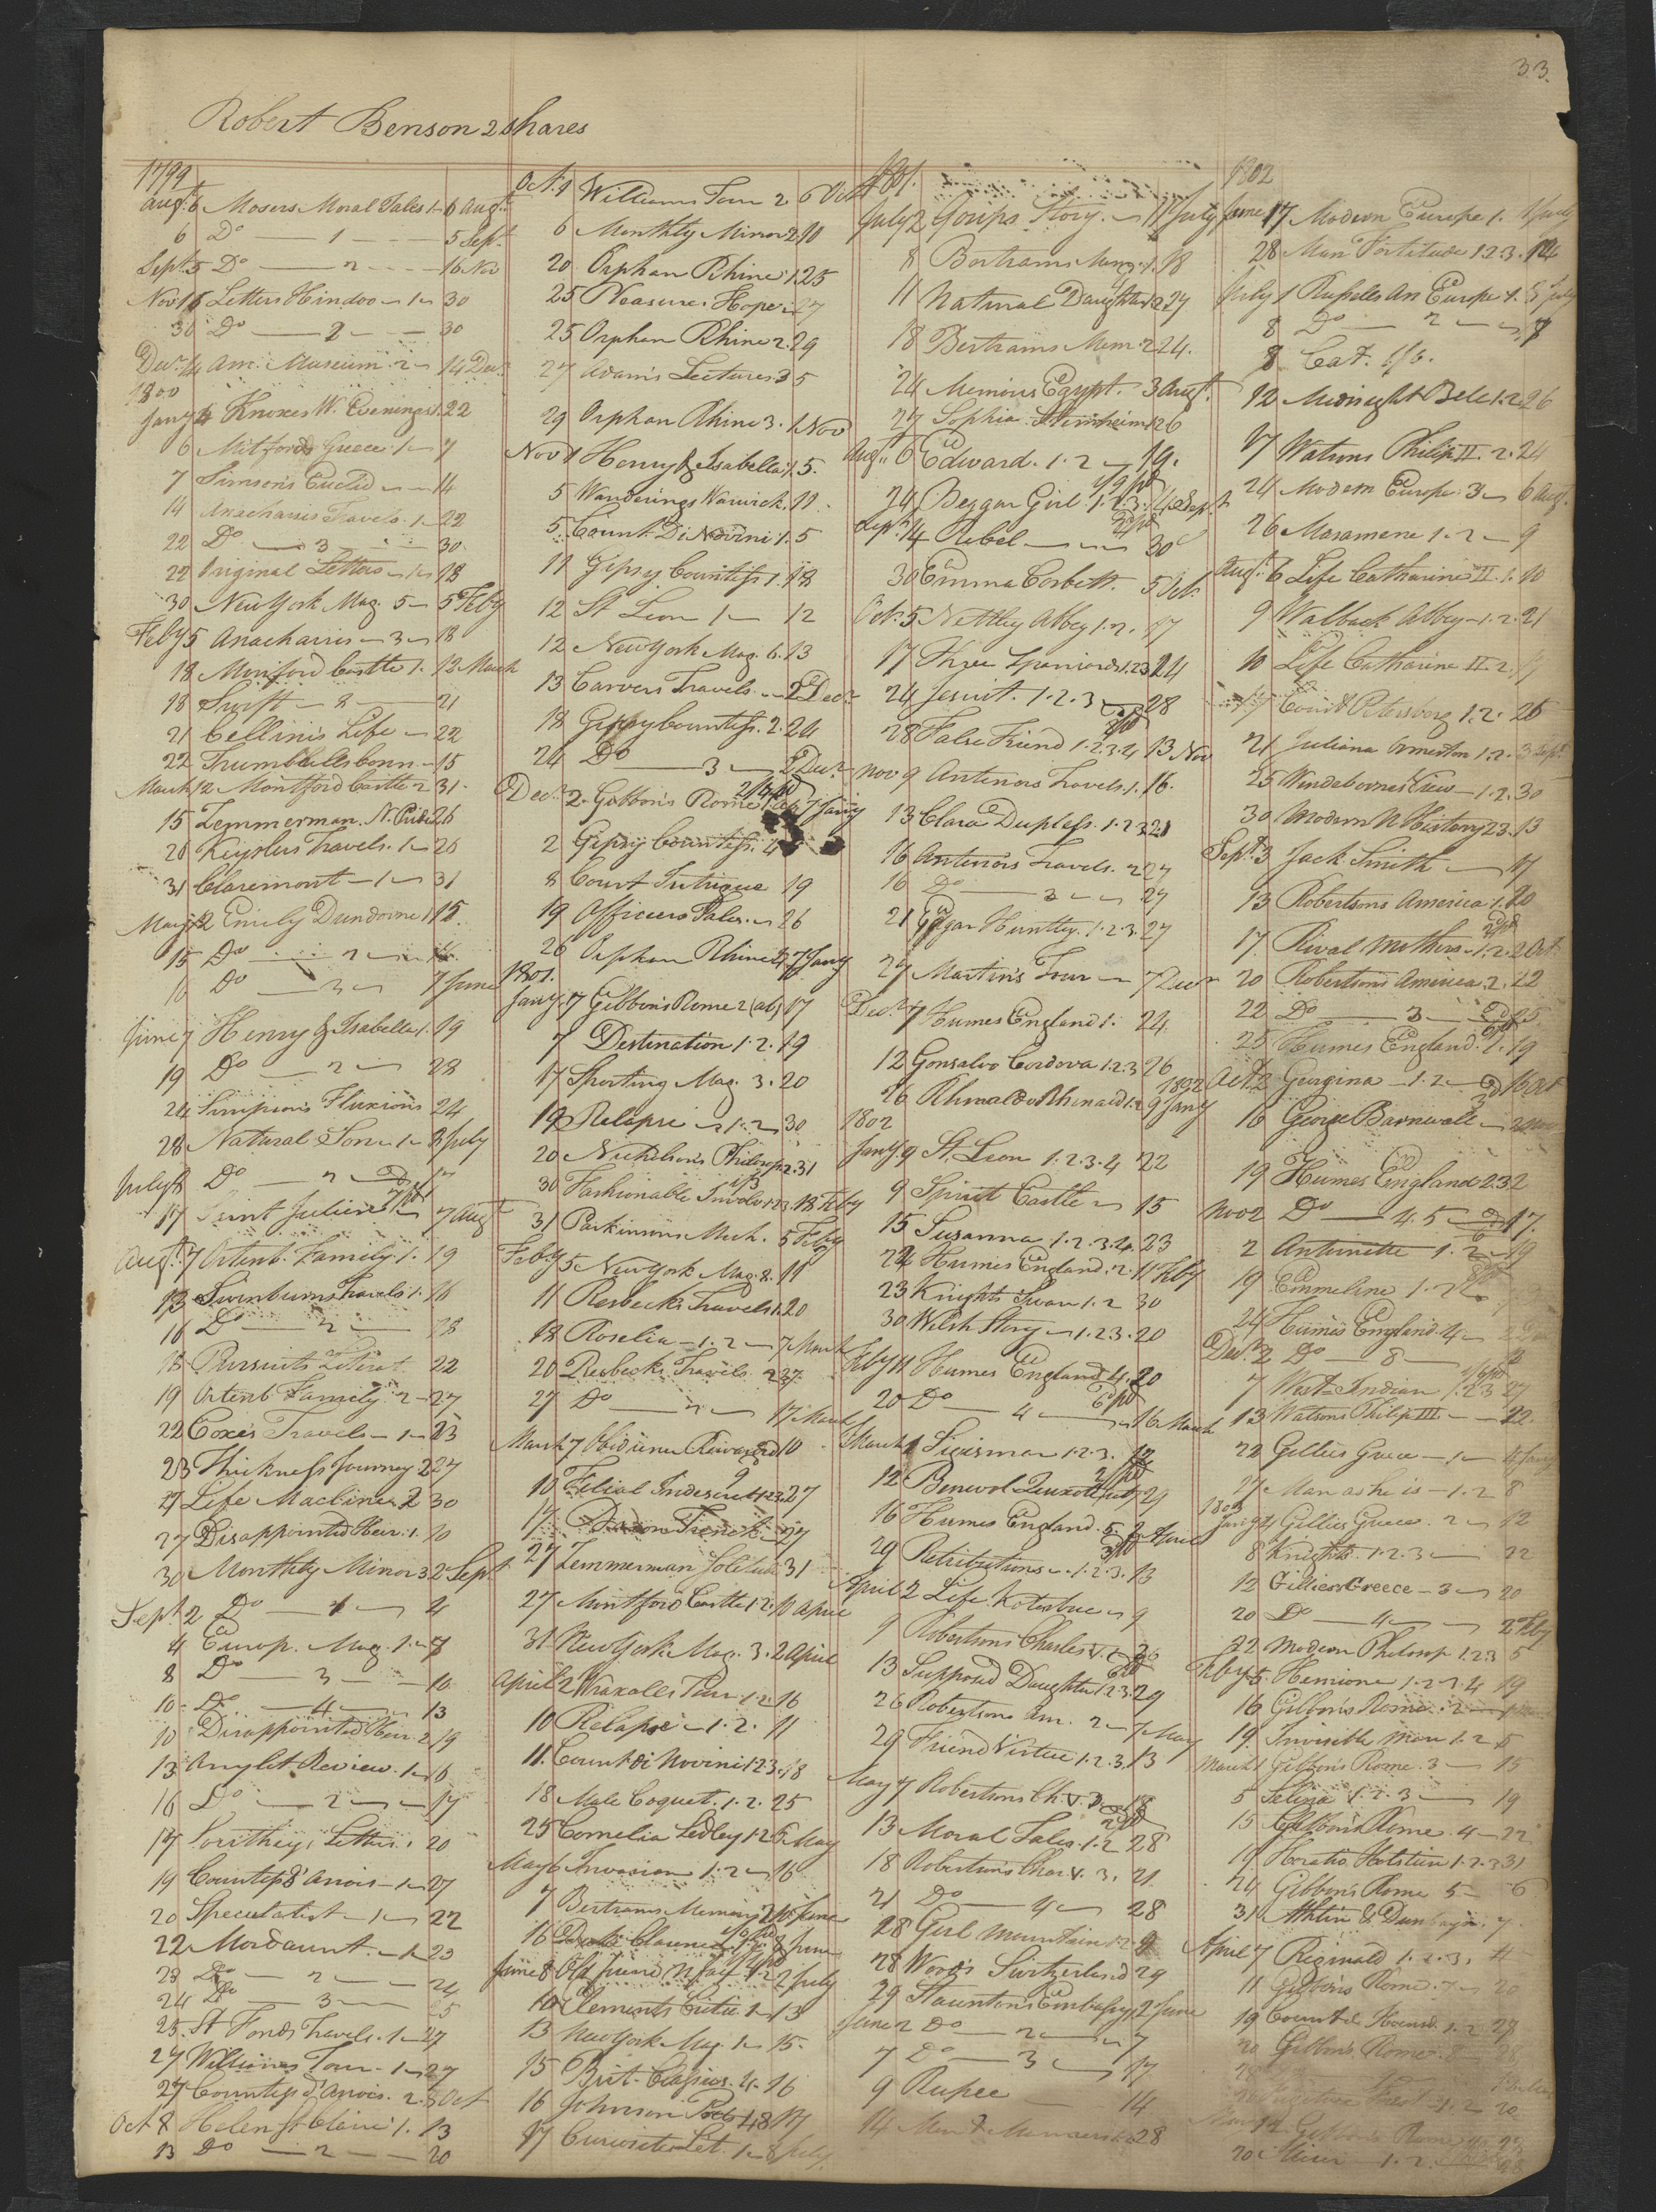 33.
Robert Benson 2 shares
1799
Augt. 6 Mosers Moral Tales 1 - 6 Augt.
6 Do — 1 — 5 Sept
Sept 5 Do — 2 — 16 Nov
Nov 16 Letters Hindoo - 1 - 30
30 Do — 2 — 30
Decr. 14 Am. Museum. 2 - 14 Decr
1800
Jany 4 Knoxes W. Evenings 1. 22
6 Mitfords Greece 1 - 7
7 Simson's Euclid - 14
14 Anacharsis Travels. 1 - 22
22 Do — 3 — 30.
22 Original Letters - 1 - 28
30 New York Mag. 5 - 5 Feby
Feby 5 Anacharsis - 3 - 18
18 Montford Castle 1. 12 March
18 Swift - 2 — 21
21 Cellini's Life - 22
22 Trumbulls Conn. - 15
March 12 Montford Castle 2 31.
15 Zemmerman. N. Pride 26
26 Keyslers Travels. 1 - 26
31 Claremont - 1 - 31
May 12 Emily Dundorne 1 15
15 Do — 2 — 16.
16 Do — 3 — 7 June
June 7 Henry & Isabella 1. 19
19 Do — 2 — 28
24 Simpson's Fluxions 24
28 Natural Son - 1 - 8 July
July 8 Do — 2 — 17
17 Saint Julien 7 Augt
Augt. 7 Ortenb. Family 1. 19
13 Swinburns Travels 1. 16
16 Do — 2 — 28
18 Pursuits Literat. 22
19 Ortenb Family 2 - 27
22 Coxe's Travels - 1 - 23
23 Thickness Journey 2 27
27 Life Macline 2 30
27 Disappointed Heir. 1. 10
30 Monthly Mirror 3 2 Sept
Sept 2 Do — 4 — 4
4 Europ. Mag. 1 - 8
8 Do — 3 — 10
10 Do — 4 — 13
10 Disappointed Heir. 2 19
13 Anylet Review. 1 - 16
16 Do — 2 — 17
17 Southey's Letters. 20
19 Countess d'Anois - 1 - 27
20 Speculatist - 1 - 22
22 Mordaunt. - 1 - 23
23 Do — 2 — 24
24 Do — 3 — 25
25. St Fonds Travels. 1 - 27
27 Williams Tour - 1 - 27
27 Countess d'Anois. 2. 8 Oct
Oct 8 Helen St Claire 1. 13
13 Do — 2 — 20
Oct. 4 Williams Tour 2 6 Oct
6 Monthly Mirror 2. 10
20 Orphan Rhine 1. 25
25 Pleasures Hope - 27
25 Orphan Rhine 2. 29
27 Adam's Lectures. 3 5
29 Orphan Rhine 3. 1 Nov
Nov 1 Henry & Isabella 1. 5.
5 Wanderings Warwick. 11
5. Count Di Novini 1. 5
11 Gipsey Countess 1. 18
12 St Leon 1 — 12
12 New York Mag. 6. 13
13 Carvers Travels - 2 Decr.
18 Gipsey Countess. 2. 24
24 Do — 3 — 2 Decr
Decr. 2. Gibbon's Rome 1. (ab) 7 Jany
2 Gipsey Countess. 4
8 Court Intrigue 19
19 Officers Tales. - 26
26 Orphan Rhine 2. 7 Jany
1801.
Jany. 7 Gibbon's Rome 2 (ab) 17
7 Destination 1. 2. 19
17 Sporting Mag. 3. 20
19 Relapse - 1. 2 - 30
20 Nicholson's Philosop. 2. 31
30 Fashionable Involv. 1.2.3. 18 Feby
31 Parkinsons Mech. 5 Feby
Feby 5 New York Mag. 2. 11
11 Resbecks Travels 1. 20
18 Roselia - 1. 2 - 7 March
20 Resbecks Travels 2 27.
27 Do — 17 March
March 7 Obidience Rewarded 10
10 Filial Indescret 1.2.3. 27
17 Baron Trenck 27
27 Zemmerman Solitude 31
27 Montford Castle 1. 2. 10 April
31 New York Mag. 3. 2 April
April 2 Wraxalls Tour 1. 2 16
10 Relapse - 1. 2. 11
11. Count di Novini 1 2 3. 18
18 Male Coquet. 1. 2. 25
25 Cornelia Sedley 1.2 6 May
May 6 Invasion 1. 2 - 16
7 Bertrams Memoirs 2 10 June
16 Clarence 8 June
June 8 Old friend N face 1. 2 2 July
10 Elements Critic 1 - 13
13 New York Mag. 1 - 15.
15 Brit. Classics. 4. 16
16 Johnson Poets 48 17
17 Curiosities Lit. 1 - 8 July
1801.
July 2 Gossips Story. - 11 July
8 Bertrams Mem. 1. 18
11 Natural Daughter 1.2 27
18 Bertrams Mem. 2 24.
24 Memoirs Egypt. 3 Augt.
27 Sophia Sternheim 1. 26
Augt. 6 Edward. 1. 2 - 19.
24 Beggar Girl 1. 2. 3. 14 Sept
Sept. 14 Rebel — 30
30 Emma Corbett. 5 Oct.
Oct. 5 Nettley Abbey 1. 2. 17
17 Three Spaniards 1.2.3 24
24 Jesuit. 1. 2. 3 - 28
28 False Friend 1. 2. 3. 4 13 Nov
Nov 9 Antenors Travels. 1. 16.
13 Clara Duplessis. 1. 2. 3 21
16 Antenor's Travels. 2 27
16 Do — 3 — 27
21 Edgar Huntley. 1. 2. 3. 27
27 Martin's Tour - 7 Decr
Decr. 7 Humes England 1. 24.
12 Gonsalvo Cordova 1.2.3 26
26 Rhinaldo Rhinaldi 1.2 9 Jany 1802
1802
Jany. 9 St. Leon 1. 2. 3. 4 22
9 Spirit Castle - 15
15 Susanna 1. 2. 3. 4. 23
22 Humes England. 2. 11 Feby
23 Knights Swan 1. 2 30
30 Welsh Story - 1. 2. 3. 20
Feby 11 Humes England 4. 20
20 Do — 4 — 16 March
March 1 Sicisman 1. 2. 3. 12
12 Benevol Quixote 29
16 Humes England. 5. 2 April
29 Retributions - 1. 2. 3. 13
April 2 Life Kotzebue - 9
9 Robertsons Charles V. 26
13 Supposed Daughter 1.2.3. 29
26 Robertsons Am. 2 - 7 May
29 Friend Virtue 1. 2. 3. 13
May 7 Robertsons Ch. V. 2. 18
13 Moral Tales. 1. 2 28
18 Robertson's Char V. 3. 21.
21 Do — 4 — 28
28 Girl Mountain 1. 2. 9
28 Wood's Switzerland 29
29 Staunton's Embassy 1. 2 June
June 2 Do — 2 — 7
7 Do — 3 — 17
9 Rupee 14
14 Men & Manners 28
1802
June 17 Modern Europe 1. 1 July
28 Man Fortitude 1. 2. 3. 12
July 1 Russells An Europe 1. 8 July
8 Do — 2 — 8
8 Cat.
12 Midnight Bell 1. 2 26
17 Watsons Philip II. 2. 24
24 Modern Europe 3 - 6 Augt.
26 Mosamene 1. 2 - 9
Augt. 6 Life Catharine II. 1. 10
9 Walback Abbey - 1. 2. 21
10 Life Catharine II. 2. 17
17 Court Petersburg 1. 2. 26
21 Juliana Ormeston 1. 2. 3 Sept.
25 Windebornes View - 1. 2. 30
30 Modern N History 2 3. 13
Sept. 3 Jack Smith - 17
13 Robertsons America 1. 20
17. Rival Mothers - 1. 2. 2 Oct
20 Robertsons America. 2. 22
22 Do — 3 — 25
25 Humes England. 7. 19
Oct. 2 Georgina - 1. 2 - 16 Oct
16 George Barnwell - 2 Nov
19 Humes England 2 3 2
Nov 2 Do — 4. 5 — 17.
2 Antoinette 1. 2 - 19
19 Emmeline 1. 2
24 Humes England. 4 - 2 Dec
Decr. 2 Do — 8 —
7 West-Indian 1. 2. 3 27
13 Watsons Philip III. - - 22.
22 Gillies Greece - 1 - 4 Jany
27 Man as he is - 1. 2 8
1803
Jany 4 Gillies Greece. 2 - 12
8 Knights. 1. 2. 3 - 22
12 Gillies Greece - 3 - 20
20 Do — 4 — 2 Feby
22 Modern Philosop 1. 2. 3 5
Feby 5. Hermione 1. 2. 3. 4 19
16 Gibbon's Rome. 2
19. Invisible Man 1. 2 5
March 1 Gibbons Rome. 3 - 15
5 Selina 1. 2. 3 - 19
15 Gibbons Rome. 4 - 22
19 Horatio Holstein 1. 2. 3 31
24 Gibbon's Rome 5 - 6
31 Athlin & Dunbayn. 7.
April 7 Reginald 1. 2. 3.
11 Gibbon's Rome. 7 - 20
19 Count 1. 2 27
20 Gibbons Rome. 8
1. 2 20
12 Gibbons Rome
20 Miser - 1. 2.